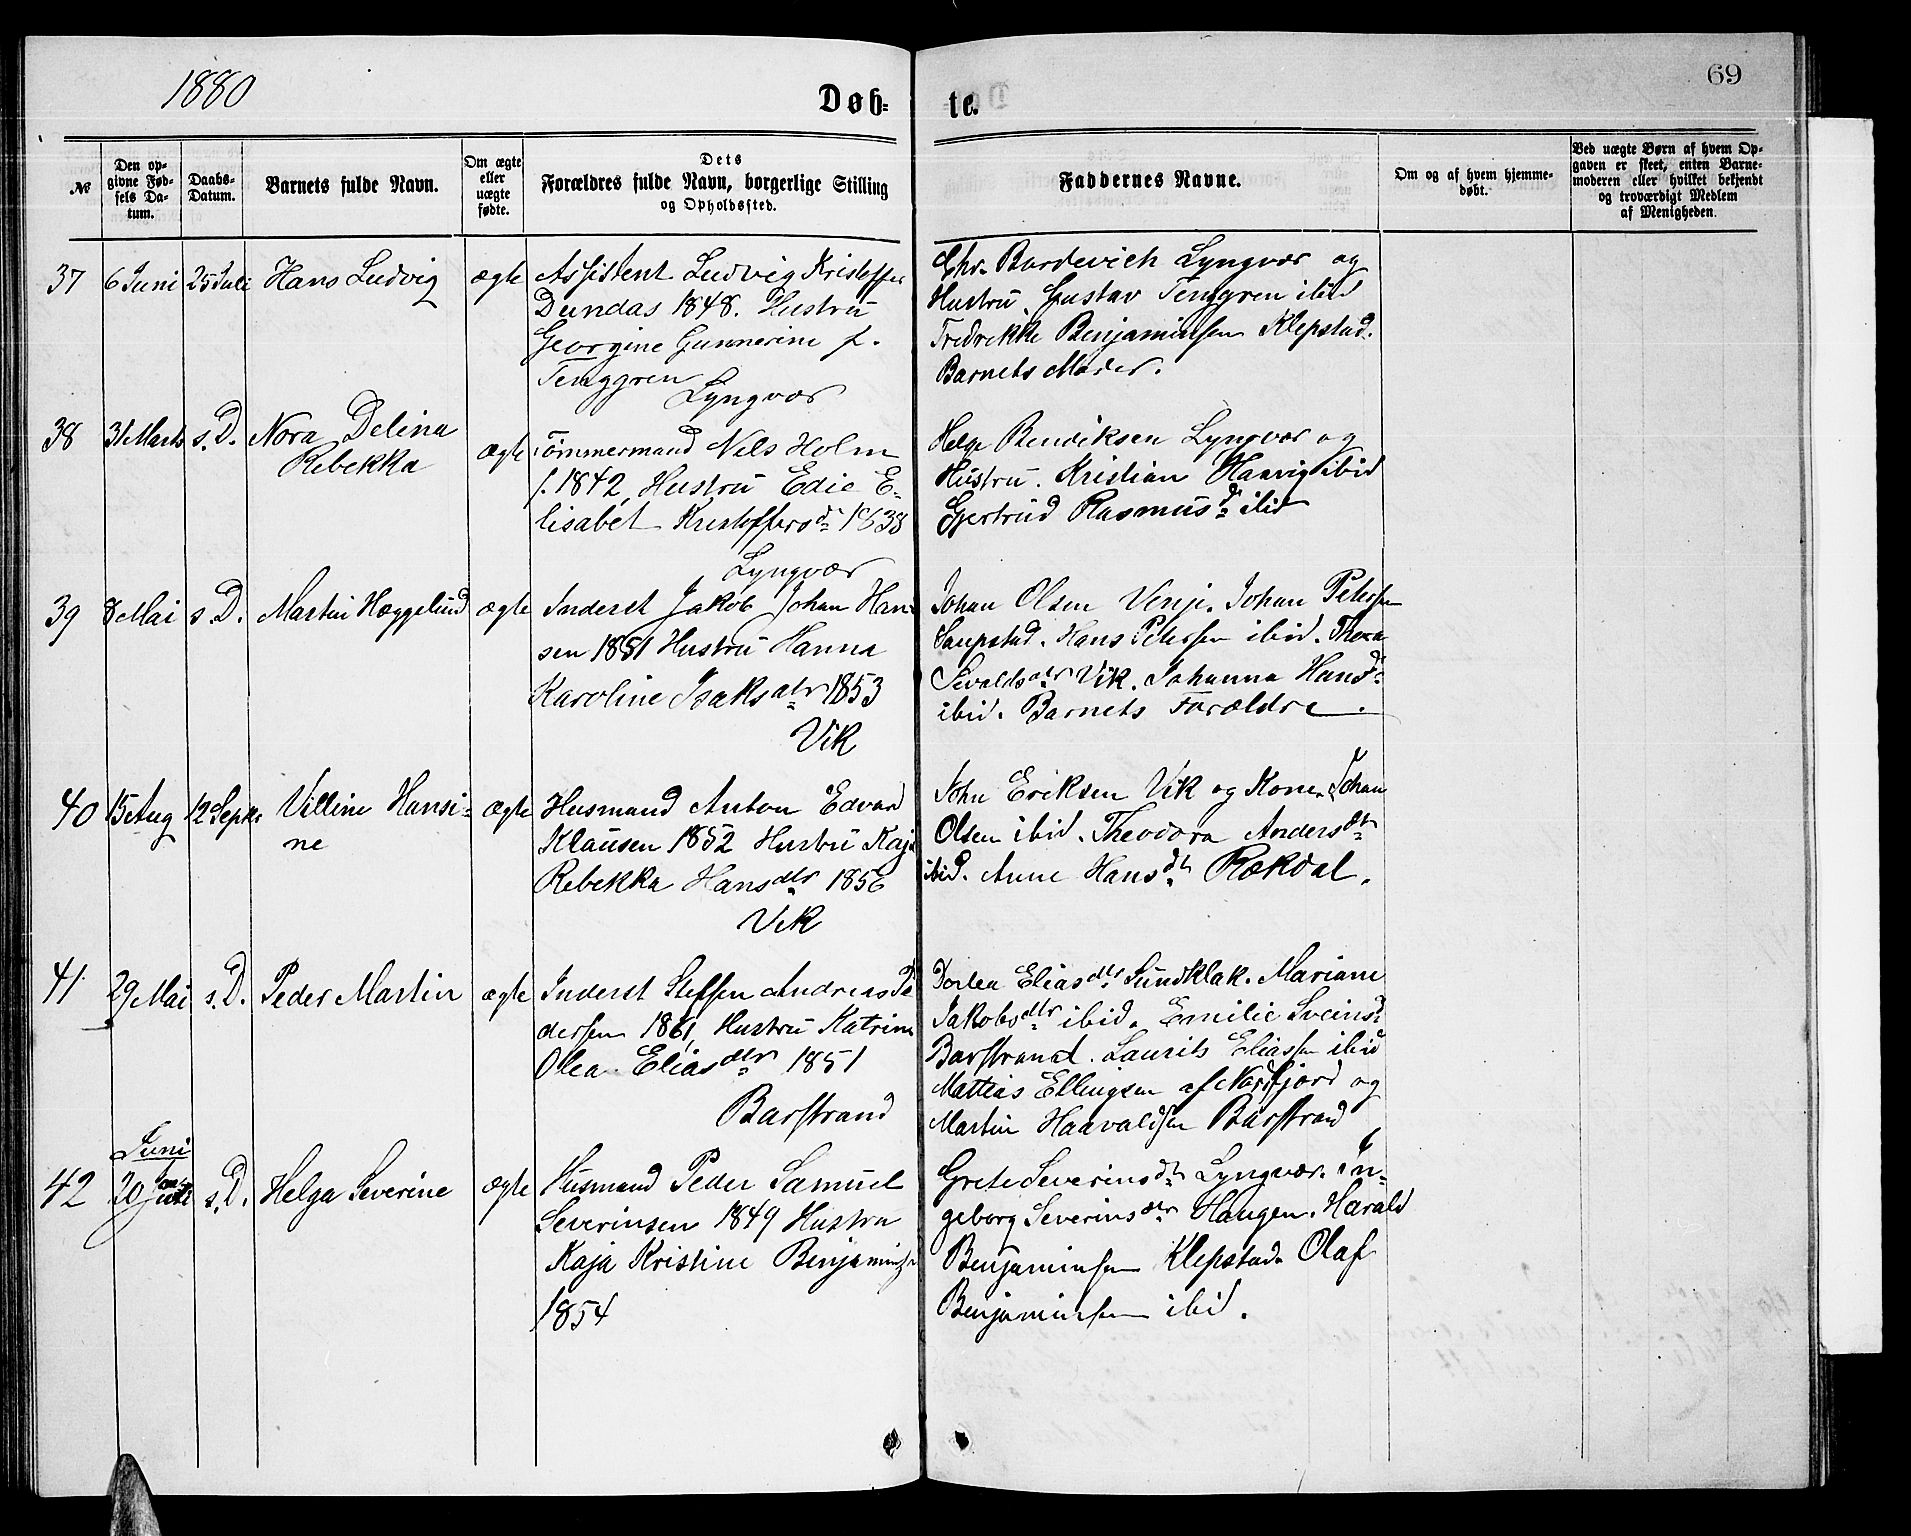 1880
69
Døb-
te.
№
Den op-
givne Fød-
sels Da-
tum.
Daabs-
Datum.
Barnets fulde Navn.
Om ægte
eller
uægte
fødte.
Dets
Forældres fulde Navn, borgerlige Stilling
og Opholdssted.
Faddernes Navne.
Om og af hvem hjemme-
døbt.
Ved uægte Børn af hvem Op-
gaven er skeet, enten Barne-
moderen eller hvilket bekjendt
og troværdigt Medlem
af Menigheden.
37 6 Juni 25 Juli Hans Ludvig ægte
Assistent Ludvig Kristoffer
Dundas 1848. Hustru
Georgine Gunnerine f.
Tenggren
Lyngvær
Chr. Bordevich Lyngvær og
Hustru. Gustav Tenggren ibid
Fredrikke Benjaminsen Klepstad.
Barnets Moder.
38 31 Marts s. D. Nora Delina
Rebekka
ægte
Tømmermand Nils Holm
f. 1842, Hustru Edie E-
lisabet Kristoffersd. 1838
Lyngvær
Helge Bendiksen Lyngvær og
Hustru. Kristian Haavig ibid
Gjertrud Rasmusd. ibid
39 8 Mai s. D. Martin Hæggelund ægte
Inderst Jakob Johan Han
sen 1851 Hustru Hanna
Karoline Isaksdtr 1853
Vik
Johan Olsen Venje. Johan Petersen
Saupstad. Hans Petersen ibid. Thora
Sivaldsdtr Vik. Johanna Hansd.
ibid. Barnets Forældre.
40 15 Aug 12 Septr Villine Hansi-
ne
ægte
Husmand Anton Edvard
Klausen 1852 Hustru Kaja
Rebekka Hansdtr 1856
Vik
John Eriksen Vik og Kone. Johan
Olsen ibid. Theodora Andersdtr
ibid. Anne Hansdtr Rækdal.
41 29 Mai s. D. Peder Martin ægte
Inderst Steffen Andreas Pe
dersen 1861, Hustru Katrine
Olea Eliasdtr 1851
Barstrand
Dorlea Eliasdtr Sundklak. Mariane
Jakobsdtr ibid. Emilie Sveinsd.
Barstrand. Laurits Eliassen ibid
Mattias Ellingsen af Nordfjord og
Martin Haavaldsen Barstrand
Juni
42 20 Juli s. D. Helga Severine ægte
Husmand Peder Samuel
Severinsen 1849 Hustru
Kaja Kristine Benjaminsen
1854
Grete Severinsdtr Lyngvær. In-
geborg Severinsdtr Haugen. Harald
Benjaminsen Klepstad. Olaf
Benjaminsen ibid.